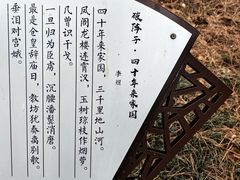 破阵子·四十年来家国
李煜
四十年来家国，三千里地山河。
凤阁龙楼连霄汉，玉树琼枝作烟萝。
几曾识干戈。
一旦归为臣虏，沉腰潘鬓消磨。
最是仓皇辞庙日，教坊犹奏离别歌。
垂泪对宫娥。